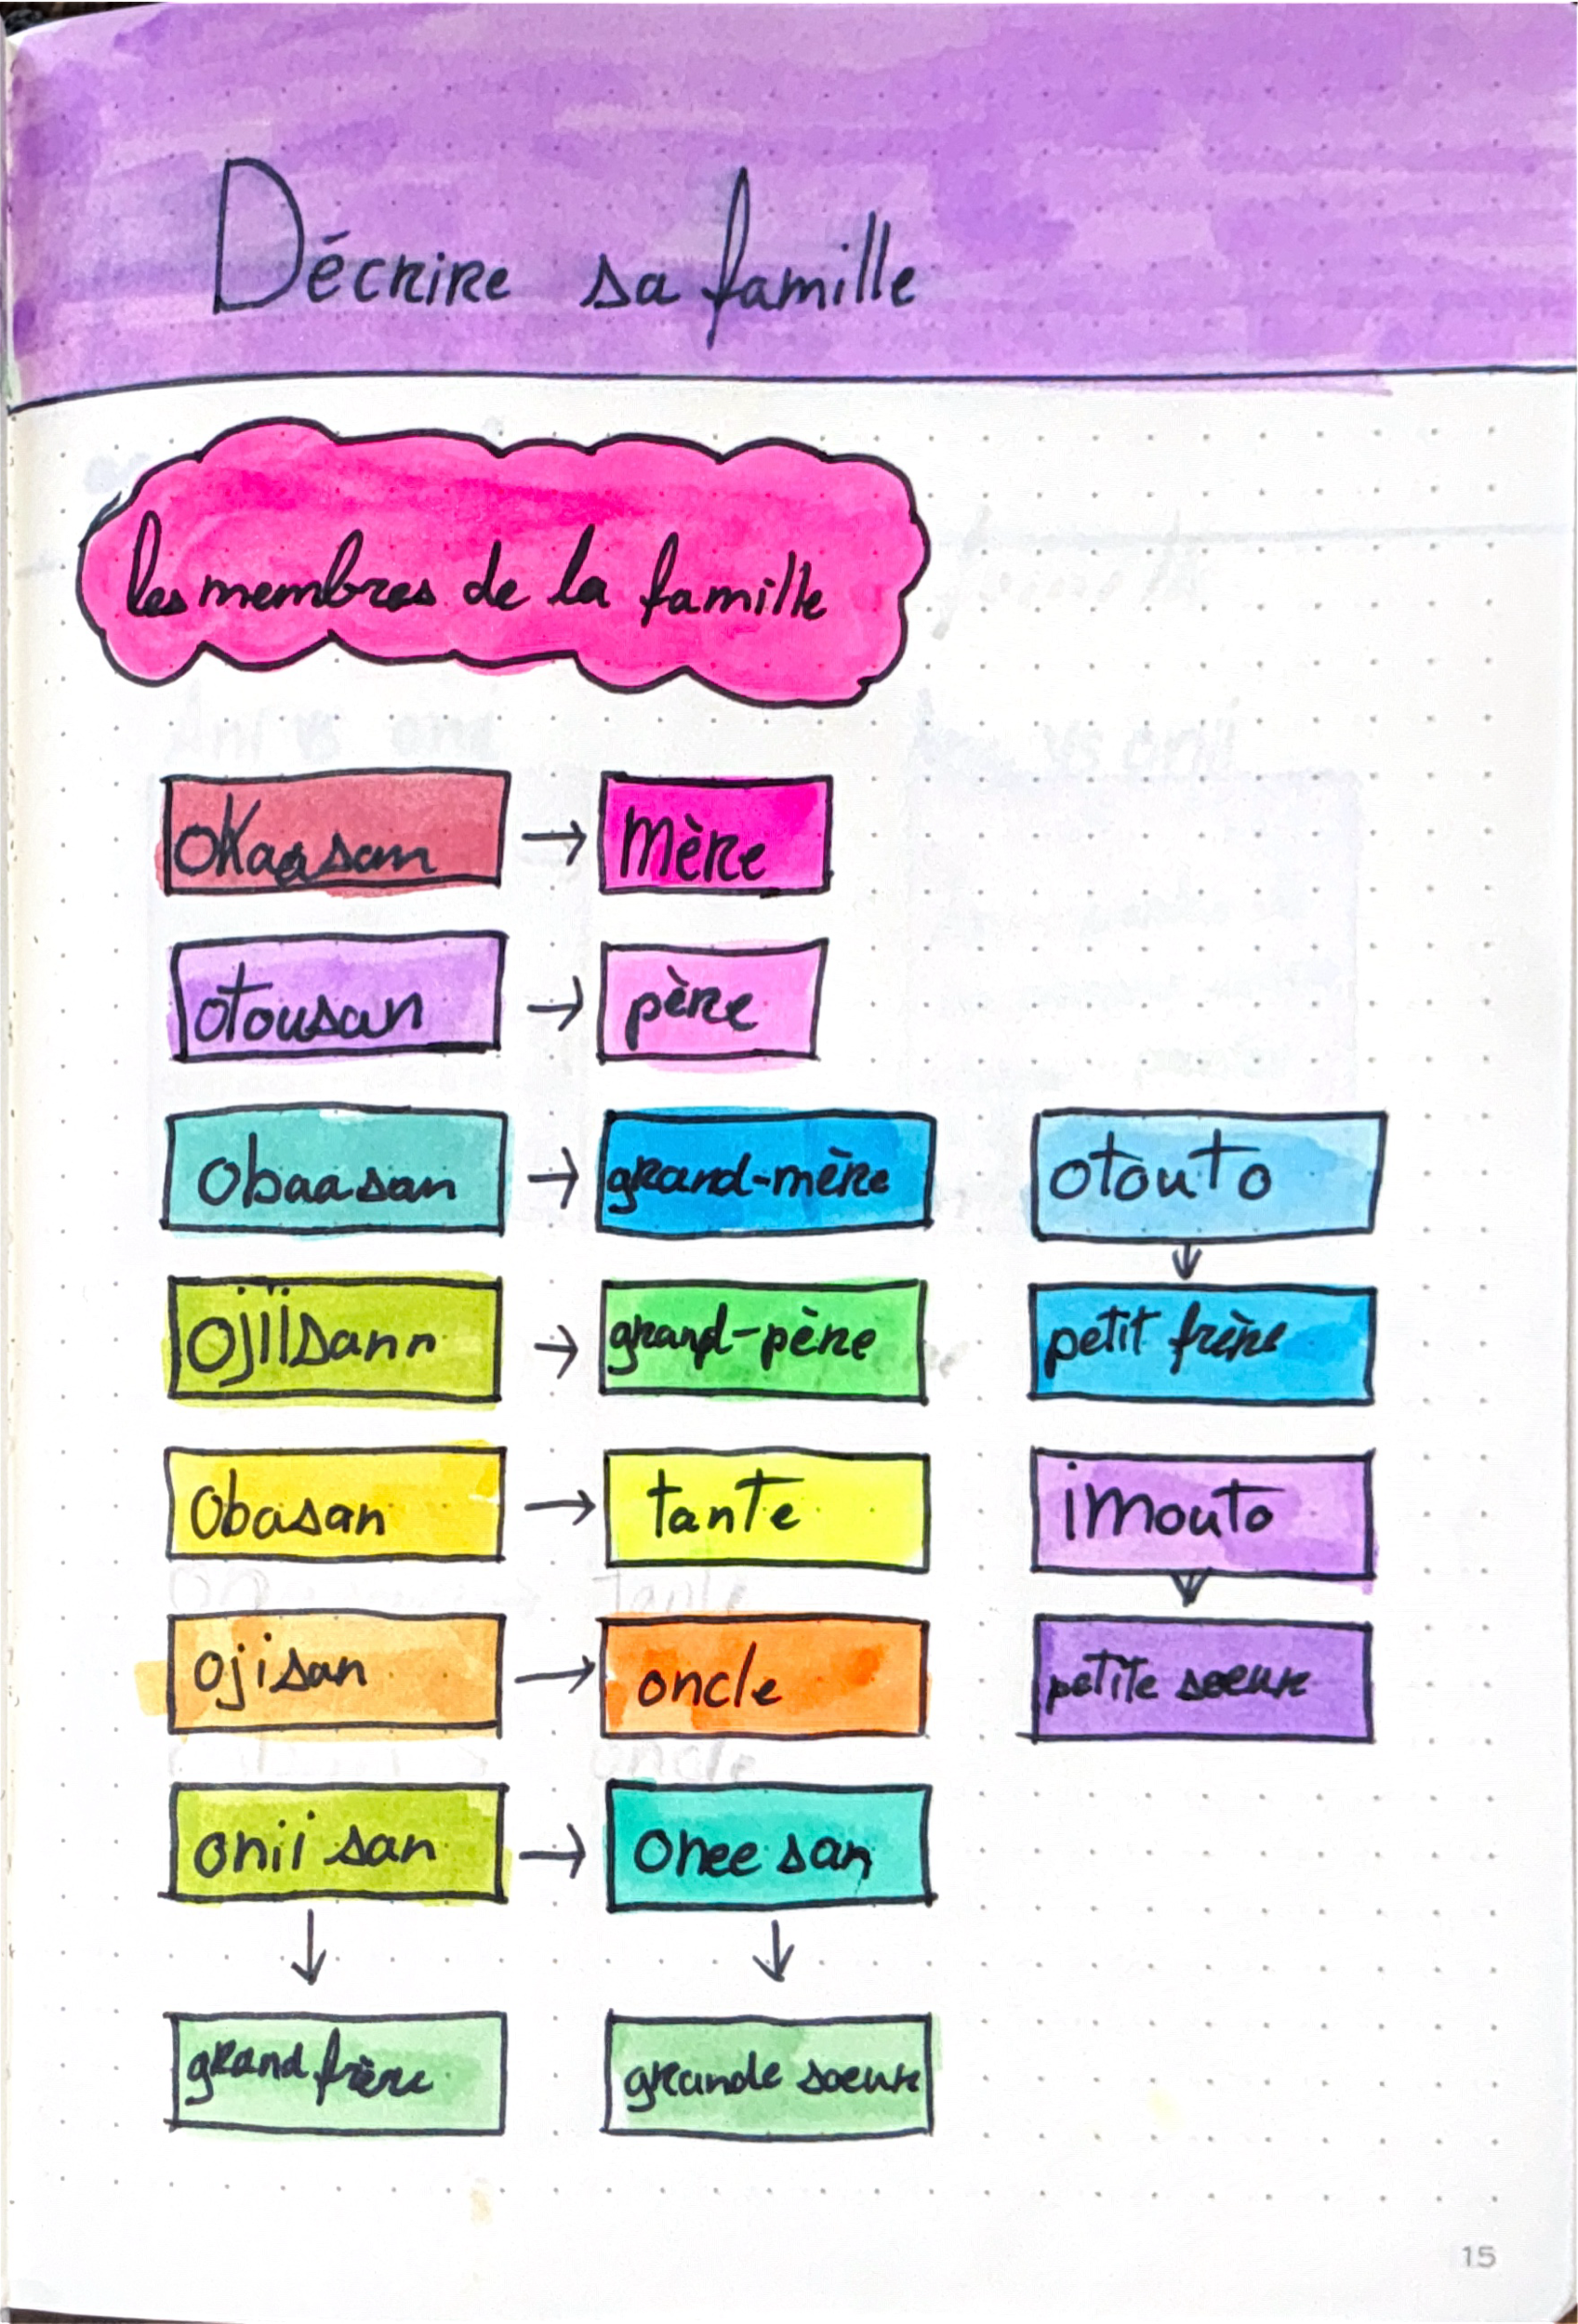 Décrire sa famille
les membres de la famille
okaasan → Mère
otousan → père
obaasan → grand-mère
ojiisann → grand-père
obasan → tante
ojisan → oncle
onii san → onee san
↓ ↓
grand frère grande soeur
otouto
↓
petit frère
imouto
↓
petite soeur
15